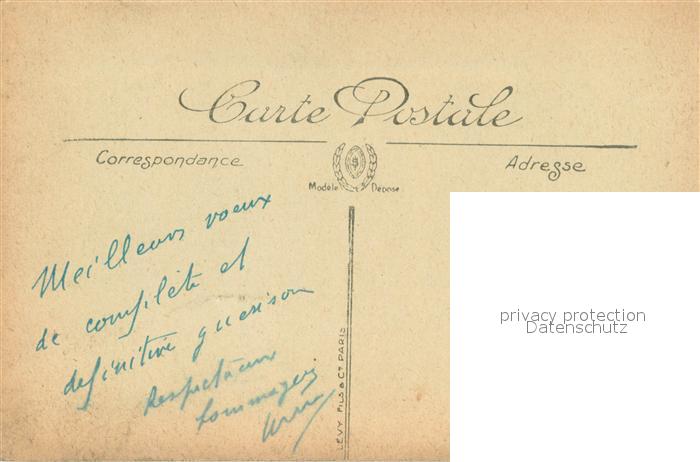 Carte Postale
Correspondance
Adresse
Modèle Déposé
Meilleurs voeux
de complète et
définitive guérison
Respectueux
hommages
LÉVY FILS & Cⁱᵉ PARIS
privacy protection
Datenschutz